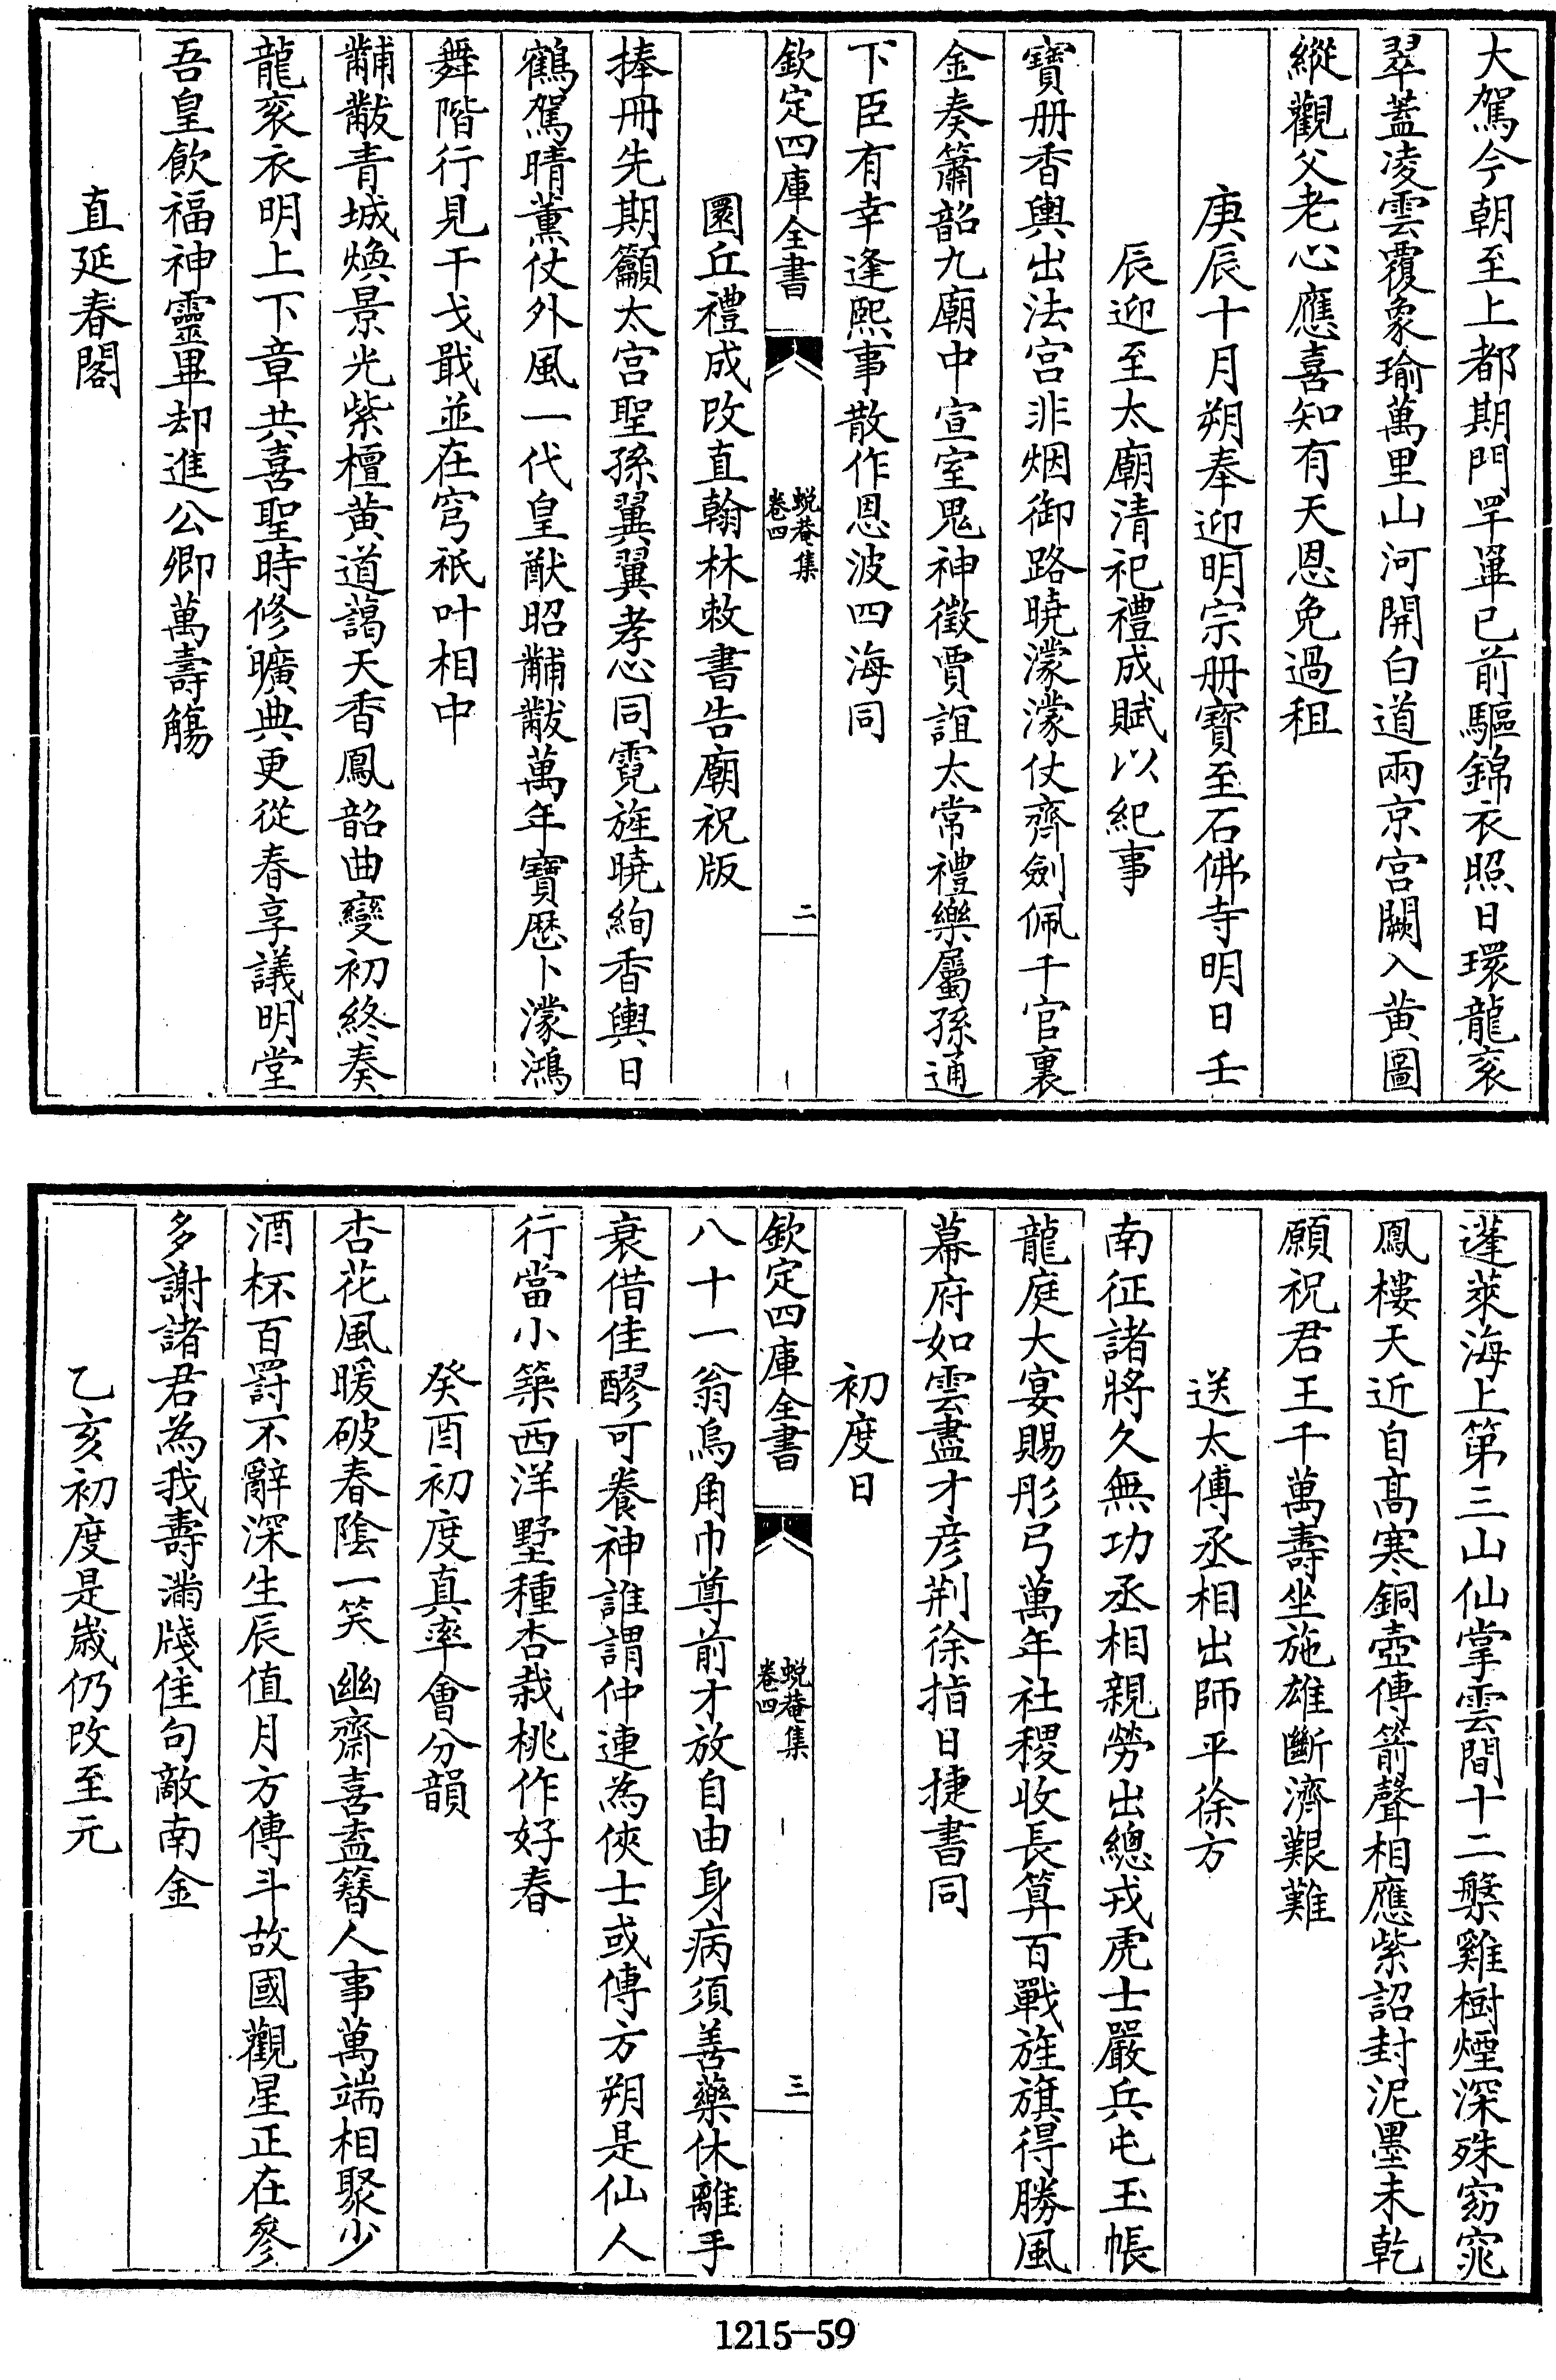 大駕今朝至上都期門罕罼已前驅錦衣照日環龍衮
翠蓋凌雲覆象瑜萬里山河開白道兩京宫闕入黄圖
縱觀父老心應喜知有天恩免過租
庚辰十月朔奉迎明宗册寶至石佛寺明日壬
辰迎至太廟清祀禮成賦以紀事
寶册香輿出法宫非烟御路曉濛濛仗齊劍佩千官裏
金奏簫韶九廟中宣室鬼神徵賈誼太常禮樂屬孫通
下臣有幸逢熙事散作恩波四海同
欽定四庫全書
蜕菴集
卷四
二
圜丘禮成改直翰林敕書告廟祝版
捧冊先期籲太宫聖孫翼翼孝心同霓旌曉絢香輿日
鶴駕晴薰仗外風一代皇猷昭黼黻萬年寶厯卜濛鴻
舞階行見干戈戢並在穹祇叶相中
黼黻青城煥景光紫檀黄道藹天香鳳韶曲變初終奏
龍衮衣明上下章共喜聖時修曠典更從春享議明堂
吾皇飲福神靈畢却進公卿萬壽觴
直延春閣
蓬萊海上第三山仙掌雲間十二槃雞樹煙深殊窈窕
鳳樓天近自髙寒銅壺傳箭聲相應紫詔封泥墨未乾
願祝君王千萬壽坐施雄斷濟艱難
送太傅丞相出師平徐方
南征諸將久無功丞相親勞出總戎虎士嚴兵屯玉帳
龍庭大宴賜彤弓萬年社稷收長算百戰旌旗得勝風
幕府如雲盡才彦荆徐指日捷書同
初度日
欽定四庫全書
蜕菴集
卷四
三
八十一翁烏角巾尊前才放自由身病須善藥休離手
衰借佳醪可養神誰謂仲連為俠士或傳方朔是仙人
行當小築西洋墅種杏栽桃作好春
癸酉初度真率會分韻
杏花風暖破春陰一笑幽齋喜盍簪人事萬端相聚少
酒杯百罰不辭深生辰值月方傳斗故國觀星正在參
多謝諸君為我壽滿牋佳句敵南金
乙亥初度是歲仍改至元
1215-59